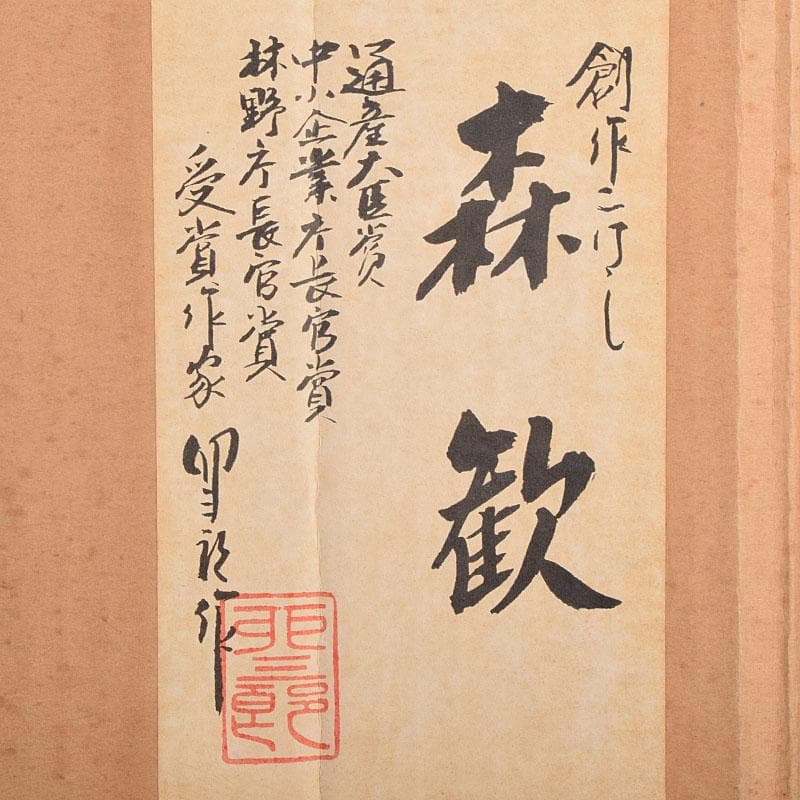 創作こけし
森歓
通産大臣賞
中小企業庁長官賞
林野庁長官賞
受賞作家 卯三郎作
卯三郎